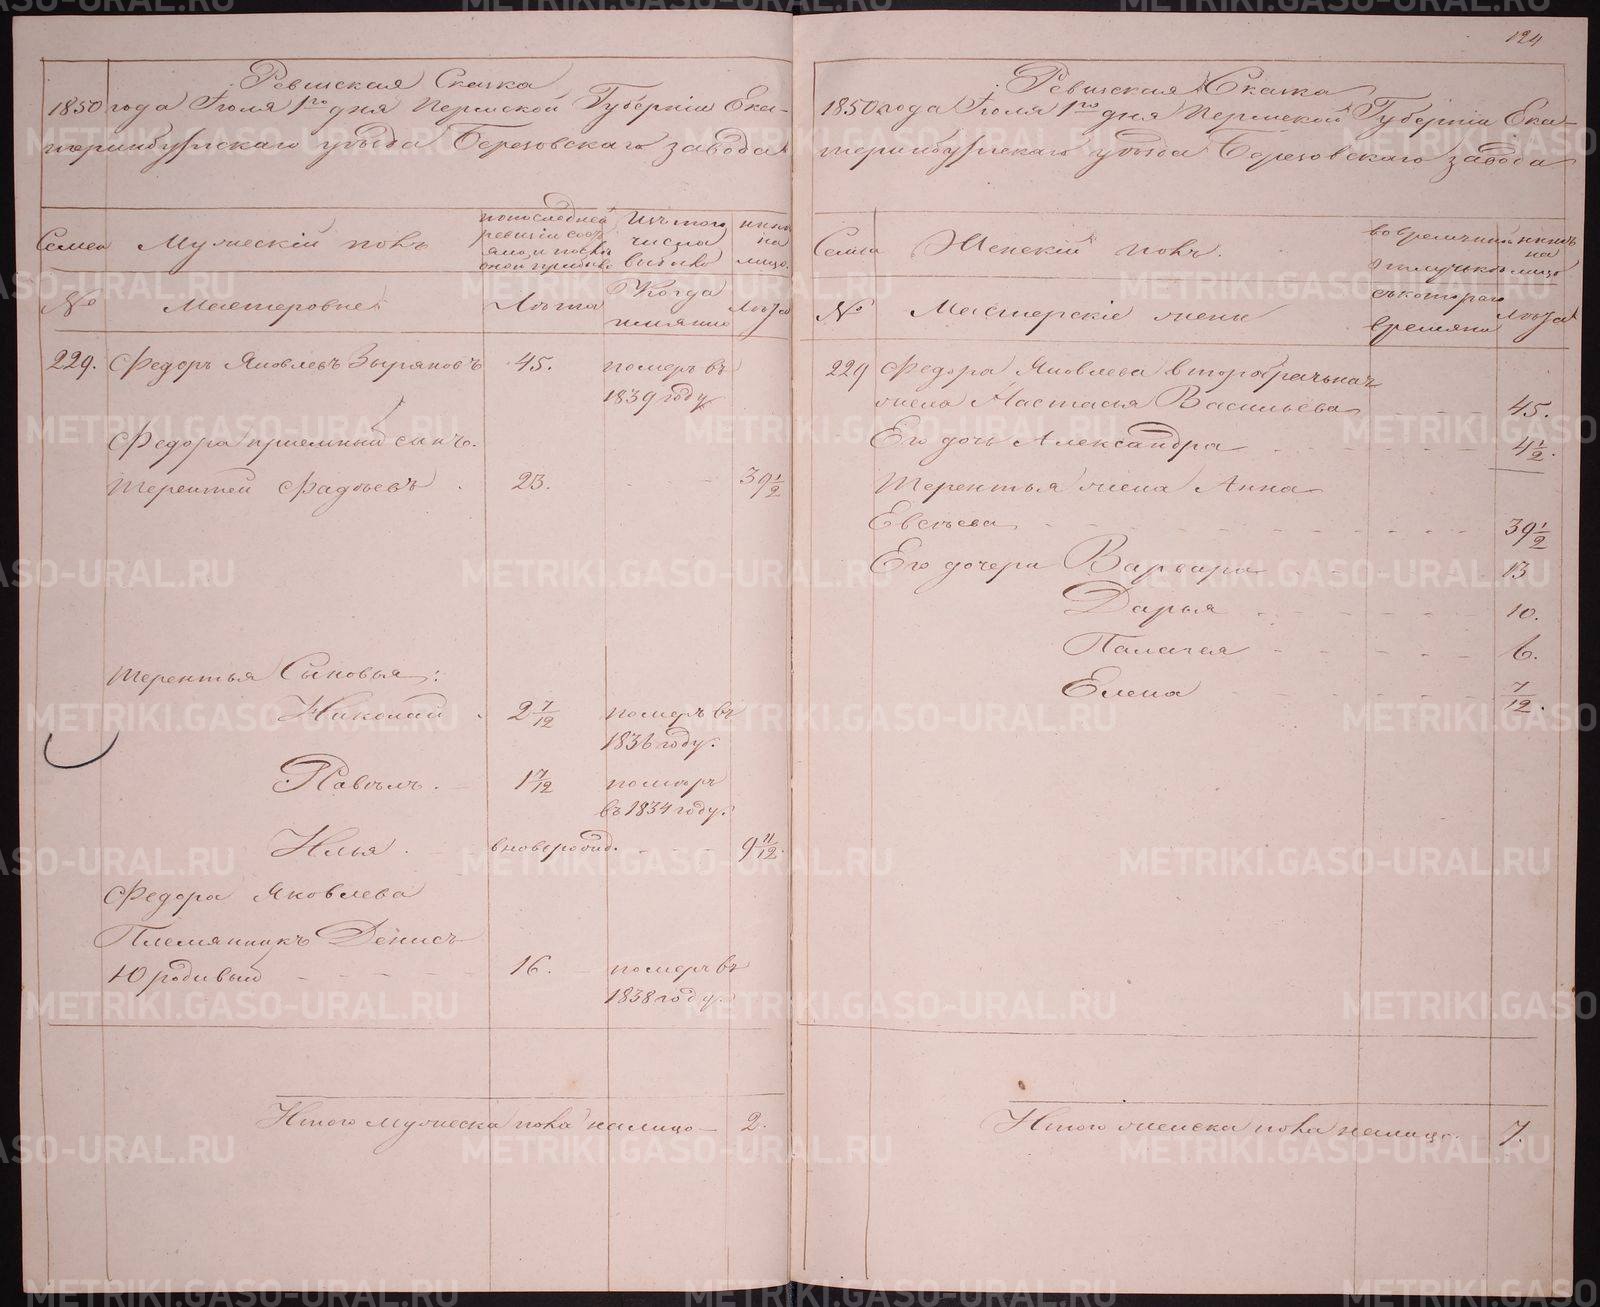 Ревизская Сказка
1850 года Іюля 1го дня Пермской Губерніи Ека-
теринбургскаго уѣзда Березовскаго завода
Семьи
Мужескій полъ
по последней
ревизіи сос-
Изъ того
числа
выбыло
ныне
на
лицо.
№
Мастеровые
Лѣта
Когда
именно
Лѣта
229. Федоръ Яковлевъ Зыряновъ 45. померъ въ
1839 году
Федора приемный сынъ.
Терентей Фадѣевъ . 23. 39 1/2
Терентья Сыновья:
Николай . 2 7/12 померъ въ
1836 году.
Павелъ . 1 7/12 померъ
въ 1834 году.
Илья . вноворожд. 9 11/12.
Федора Яковлева
Племянникъ Денисъ
Юродивый 16. померъ въ
1838 году.
Итого мужеска пола налицо 2.
124
Ревизская Сказка
1850 года Іюля 1го дня Пермской Губерніи Ека-
теринбургскаго уѣзда Березовскаго завода
Семьи
Женскій полъ.
во временной
отлучкѣ
нынѣ
на
лицо
№
Мастерскіе жены
съ котораго
времяни
Лѣта
229 Федора Яковлева второбрачная
жена Настасья Васильева 45.
Его дочь Александра 4 1/2.
Терентья жена Анна
Евсѣева 39 1/2
Его дочери Варвара 13
Дарья 10.
Палагея 6.
Елена 7/12.
Итого женска пола налицо. 7.
METRIKI.GASO-URAL.RU